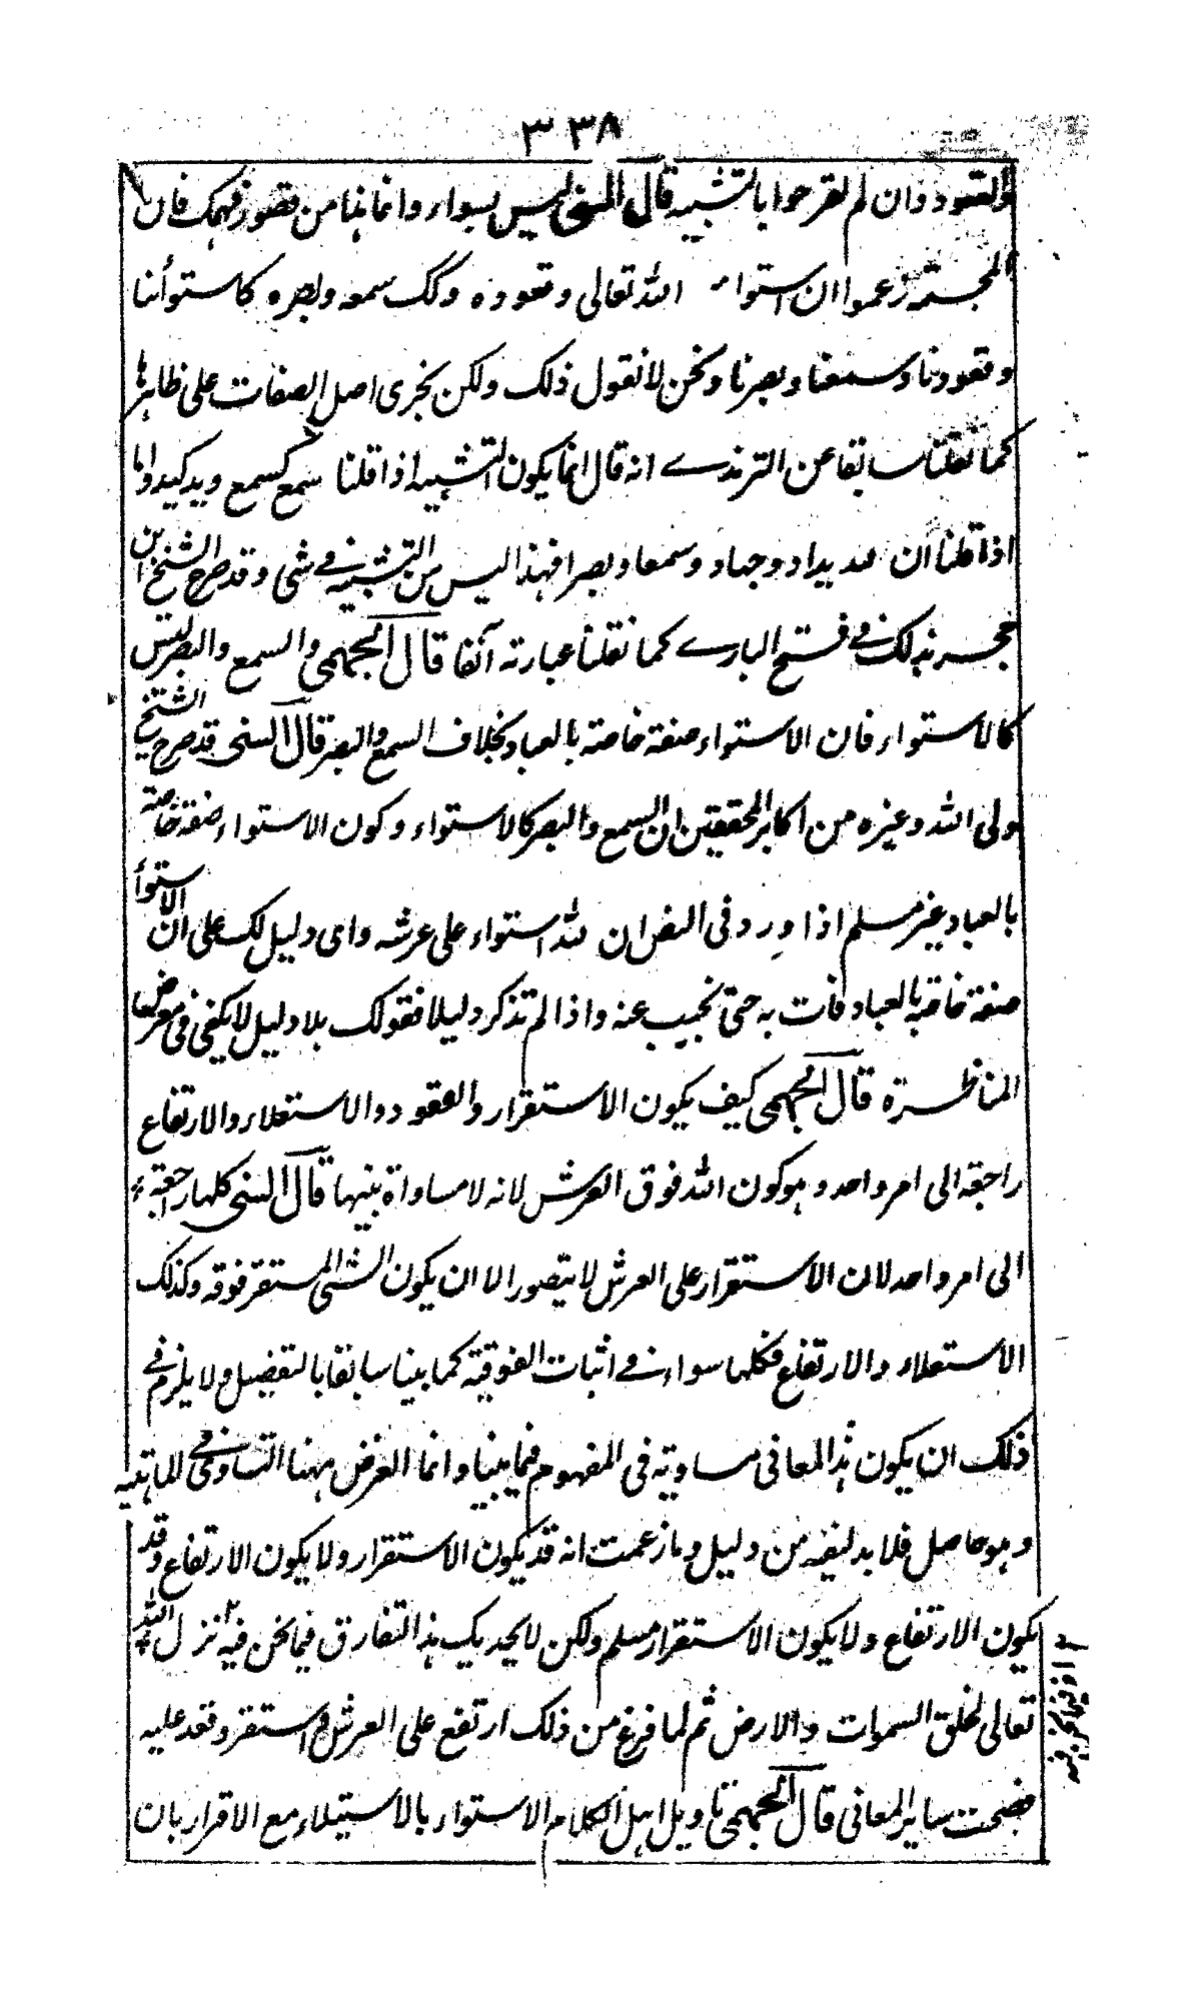 ٣٣٨
والقعود وان لم تقرحوا بالتشبيه قال السني ليس بسواء وانما هذا من قصور فهمك فان
المجسمة زعموا ان استواء الله تعالى وقعوده وكك سمعه وبصره كاستوأنا
وقعودنا وسمعنا وبصرنا ونحن لا نقول ذلك ولكن نجرى اصل الصفات على ظاهرها
كما نقلنا سابقا عن الترمذے انه قال انما يكون التشبيه اذا قلنا سمع كسمع ويد كيد واما
اذا قلنا ان لله يدا ووجها وسمعا وبصرا فهذا ليس من التشبيه فے شى وقد صرح الشيخ ابن
حجر بذلك فے فتح البارے كما نقلنا عبارته آنفا قال الجهمى والسمع والبصر ليس
كالاستواء فان الاستواء صفة خاصة بالعباد بخلاف السمع والبصر قال السنى قد صرح الشيخ
ولى الله وغيره من اكابر المحققين ان السمع والبصر كالاستواء وكون الاستواء صفة خاصة
بالعباد غير مسلم اذا ورد فى النص ان لله استواء على عرشه واى دليل لك على ان الاستوأ
صفة خاصة بالعباد فات به حتى نجيب عنه واذا لم تذكر دليلا فقولك بلا دليل لا يكفى فى معرض
المناظرة قال الجهمى كيف يكون الاستقرار والقعود والاستعلاء والارتفاع
راجعة الى امر واحد وهو كون الله فوق العرش لانه لا مساواة بينها قال السنى كلها راجعة
الى امر واحد لان الاستقرار على العرش لا يتصور الا ان يكون الشئ المستقر فوقه وكذلك
الاستعلاء والارتفاع فكلها سواء فے اثبات الفوقية كما بينا سابقا بالتفصيل ولا يلزم فے
ذلك ان يكون هذا المعانى مساوية فى المفهوم فيما بينها وانما الغرض ههنا التساوى فى الماهية
وهو حاصل فلا بد لنفيه من دليل وما زعمت انه قد يكون الاستقرار ولا يكون الارتفاع وقد
يكون الارتفاع ولا يكون الاستقرار مسلم ولكن لا يجديك هذا التفارق فيما نحن فيه نزل الله
تعالى لخلق السموات والارض ثم لما فرغ من ذلك ارتفع على العرش واستقر وقعد عليه
فصحت ساير المعانى قال الجهمى تاويل اهل الكلام الاستواء بالاستيلاء مع الاقرار بان